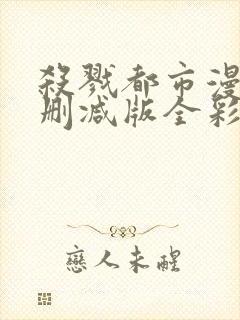 殺戮都市漫
删减版全彩
戀人未醒